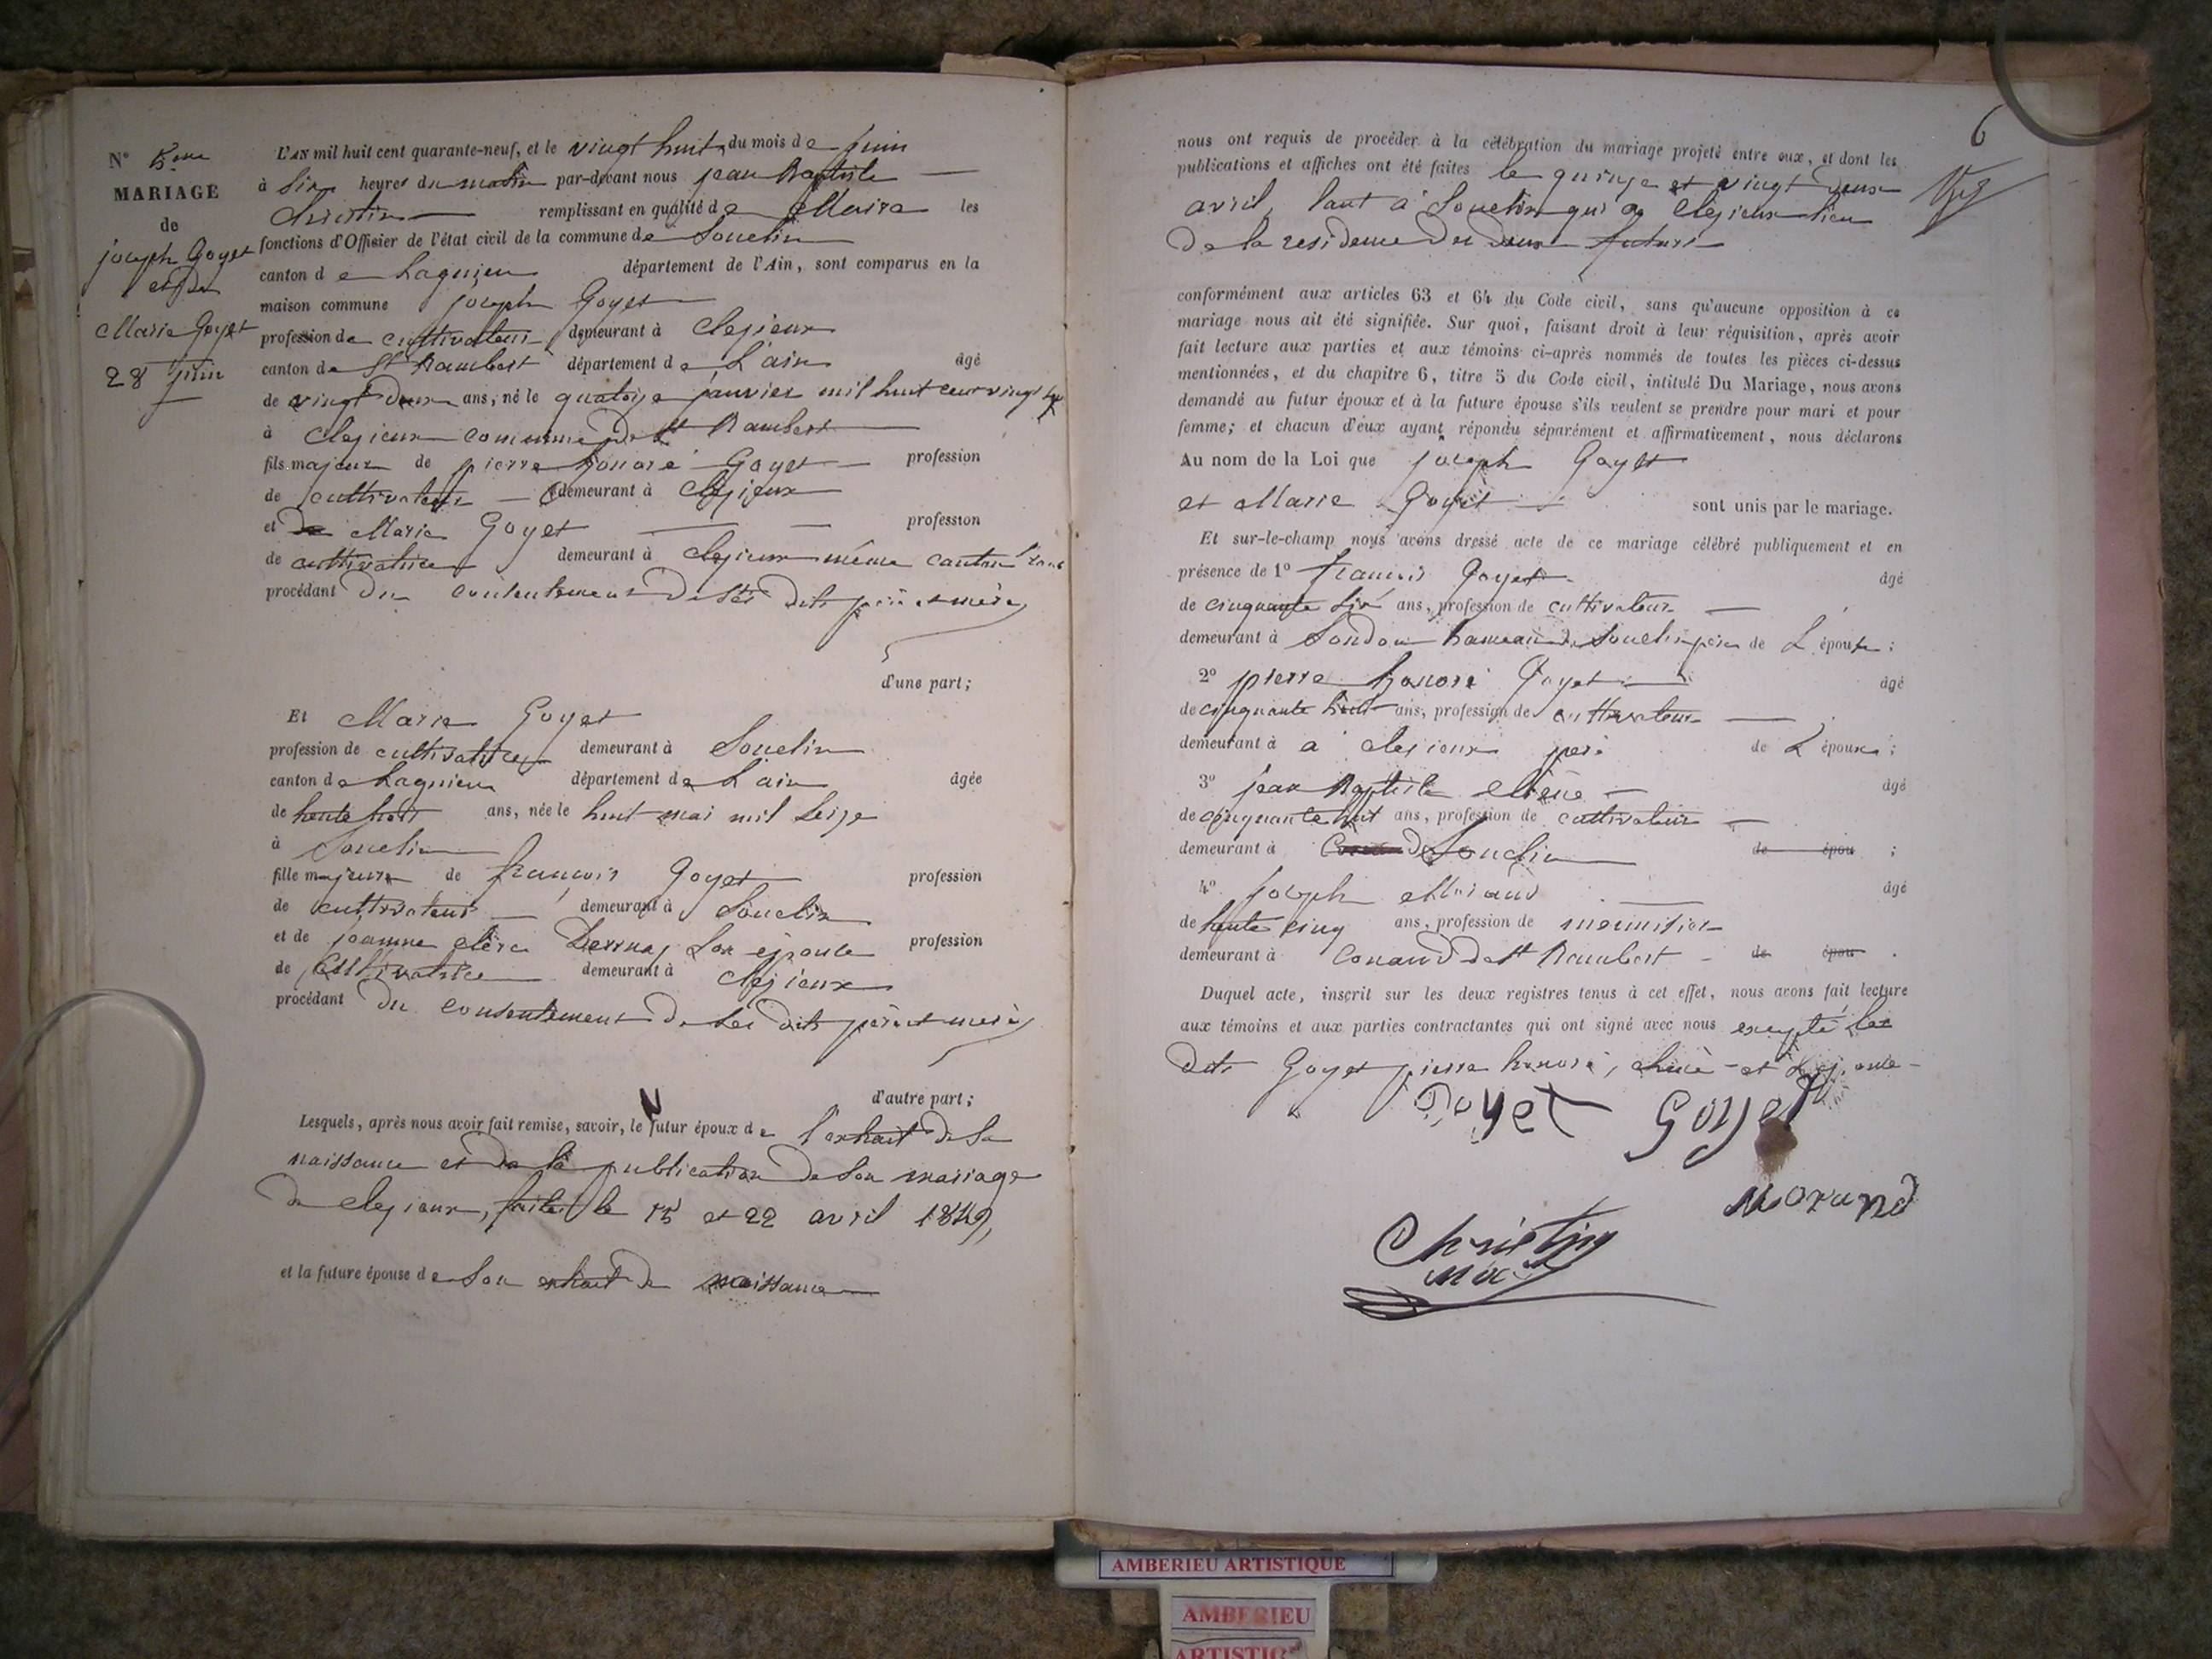 N° 5eme
MARIAGE
de
joseph Goyet
et de
Marie Goyet
28 juin
L'AN mil huit cent quarante-neuf, et le vingt huit du mois de juin
à six heures du matin par-devant nous jean Baptiste
Christin remplissant en qualité de Maire les
fonctions d'Officier de l'état civil de la commune de Souclin
canton de Lagnieu département de l'Ain, sont comparus en la
maison commune joseph Goyet
profession de cultivateur demeurant à Clezieux
canton de St Rambert département de L'ain âgé
de vingt deux ans, né le quatorze janvier mil huit cent vingt
à Clezieux commune de St Rambert
fils majeur de pierre honoré Goyet profession
de cultivateur demeurant à Clezieux
et de Marie Goyet profession
de cultivatrice demeurant à Clezieux même canton
procédant du consentement de ses dits père et mère
d'une part;
Et Marie Goyet
profession de cultivatrice demeurant à Souclin
canton de Lagnieu département de L'ain âgée
de trente trois ans, née le huit mai mil seize
à Souclin
fille majeure de françois Goyet profession
de cultivateur demeurant à Souclin
et de jeanne son epouse profession
de Cultivatrice demeurant à Clezieux
procédant du consentement de ses dits père et mère
d'autre part;
Lesquels, après nous avoir fait remise, savoir, le futur époux de l'extrait de sa
naissance et de la publication de son mariage
de Clezieux, faite le 15 et 22 avril 1849,
et la future épouse de son extrait de naissance
6
nous ont requis de procéder à la célébration du mariage projeté entre eux, et dont les
publications et affiches ont été faites le quinze et vingt deux
avril, tant à Souclin qu'à Clezieux lieu
de la residence des deux futurs
conformément aux articles 63 et 64 du Code civil, sans qu'aucune opposition à ce
mariage nous ait été signifiée. Sur quoi, faisant droit à leur réquisition, après avoir
fait lecture aux parties et aux témoins ci-après nommés de toutes les pièces ci-dessus
mentionnées, et du chapitre 6, titre 5 du Code civil, intitulé Du Mariage, nous avons
demandé au futur époux et à la future épouse s'ils veulent se prendre pour mari et pour
femme; et chacun d'eux ayant répondu séparément et affirmativement, nous déclarons
Au nom de la Loi que joseph Goyet
et Marie Goyet sont unis par le mariage.
Et sur-le-champ nous avons dressé acte de ce mariage célébré publiquement et en
présence de 1° francois Goyet âgé
de cinquante six ans, profession de cultivateur
demeurant à Soudon hameau de Souclin père de L'épouse;
2° pierre honoré Goyet âgé
de cinquante huit ans, profession de cultivateur
demeurant à a Clezieux père de L'époux;
3° jean Baptiste âgé
de cinquante huit ans, profession de cultivateur
demeurant à de Souclin de épou ;
4° joseph Morand âgé
de trente cinq ans, profession de menuisier
demeurant à Conand de St Rambert de épou .
Duquel acte, inscrit sur les deux registres tenus à cet effet, nous avons fait lecture
aux témoins et aux parties contractantes qui ont signé avec nous excepté les
dits Goyet pierre honoré, et L'epouse
Goyet Goyet
Morand
Christin
AMBERIEU ARTISTIQUE
AMBERIEU
ARTISTIQ